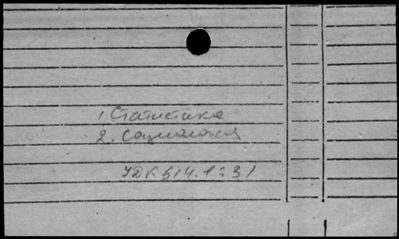 1. Статистика
2. Социология
УДК 614.1:31